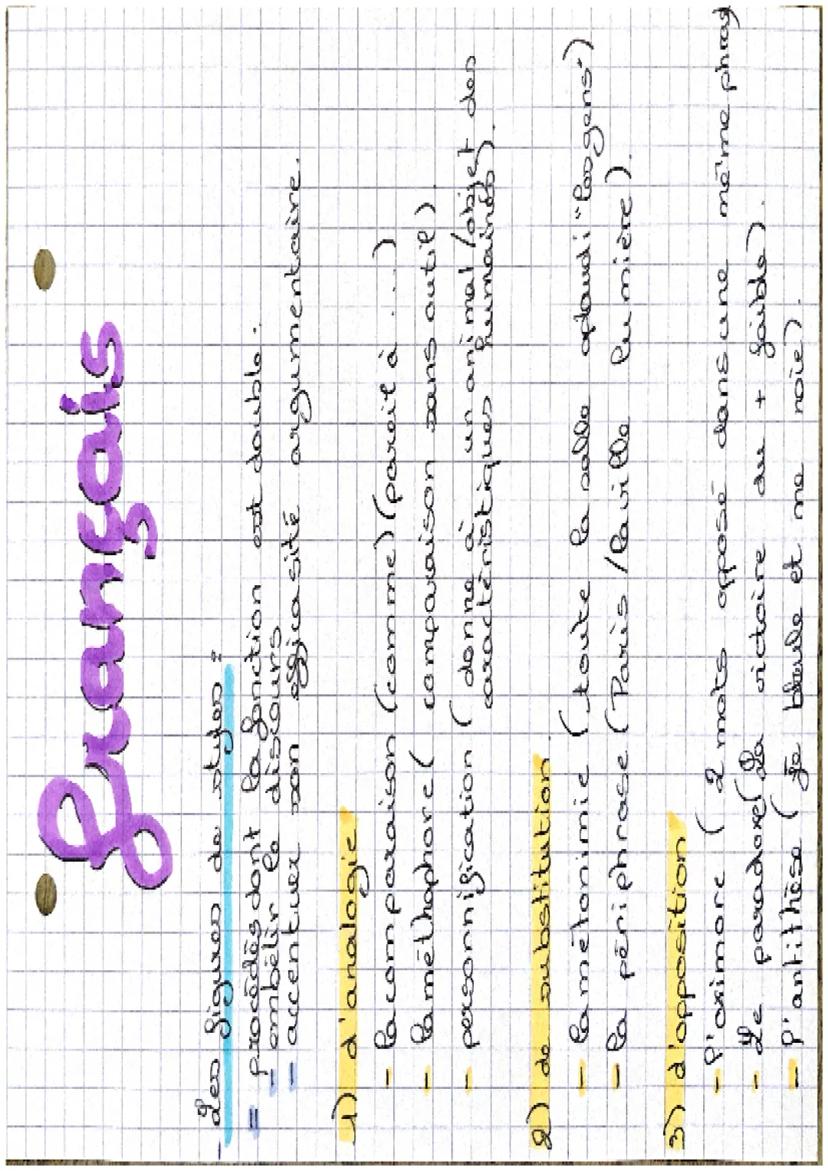 Français
- Les figures de styles :
= procédés dont la fonction est double.
- embélir le discours
- accentuer son efficasité argumentaire.
1) d'analogie
- la comparaison (comme) (pareil à ...)
- la méthaphore (comparaison sans outil)
- personnification (donne à un animal/objet des
caractéristiques humaines).
2) de substitution.
- la métonimie (toute la salle aplaudi "les gens")
- la périphrase (Paris / la ville lumière).
3) d'opposition
- l'oximore (2 mots opposé dans une même phras
- Le paradoxe (La victoire du + faible).
- l'antithèse (je brule et me noie).